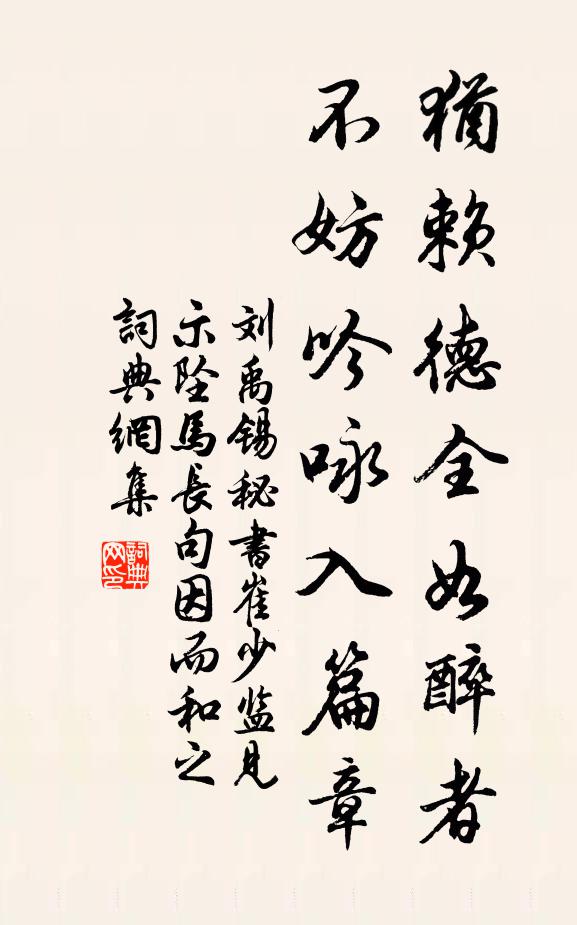 猶赖德全如醉者
不妨吟咏入篇章
刘禹锡秘書崔少监見
示坠馬長句因而和之
詞典網集
詞典网印